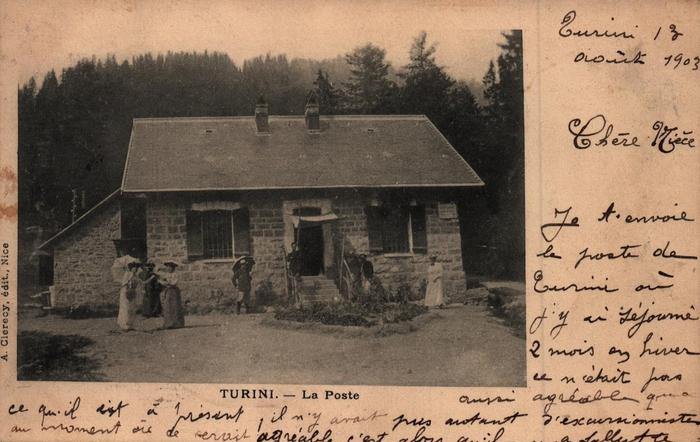 Turini 13
août 1903
Chère Nièce
Je t'envoie
la poste de
Turini où
j'y ai séjourné
2 mois en hiver
ce n'était pas
aussi agréable que
ce qu'il est à présent, il n'y avait pas autant d'excursionniste
au moment où
agréable c'est alors qu'il
TURINI. — La Poste
A. Clerecy, édit., Nice